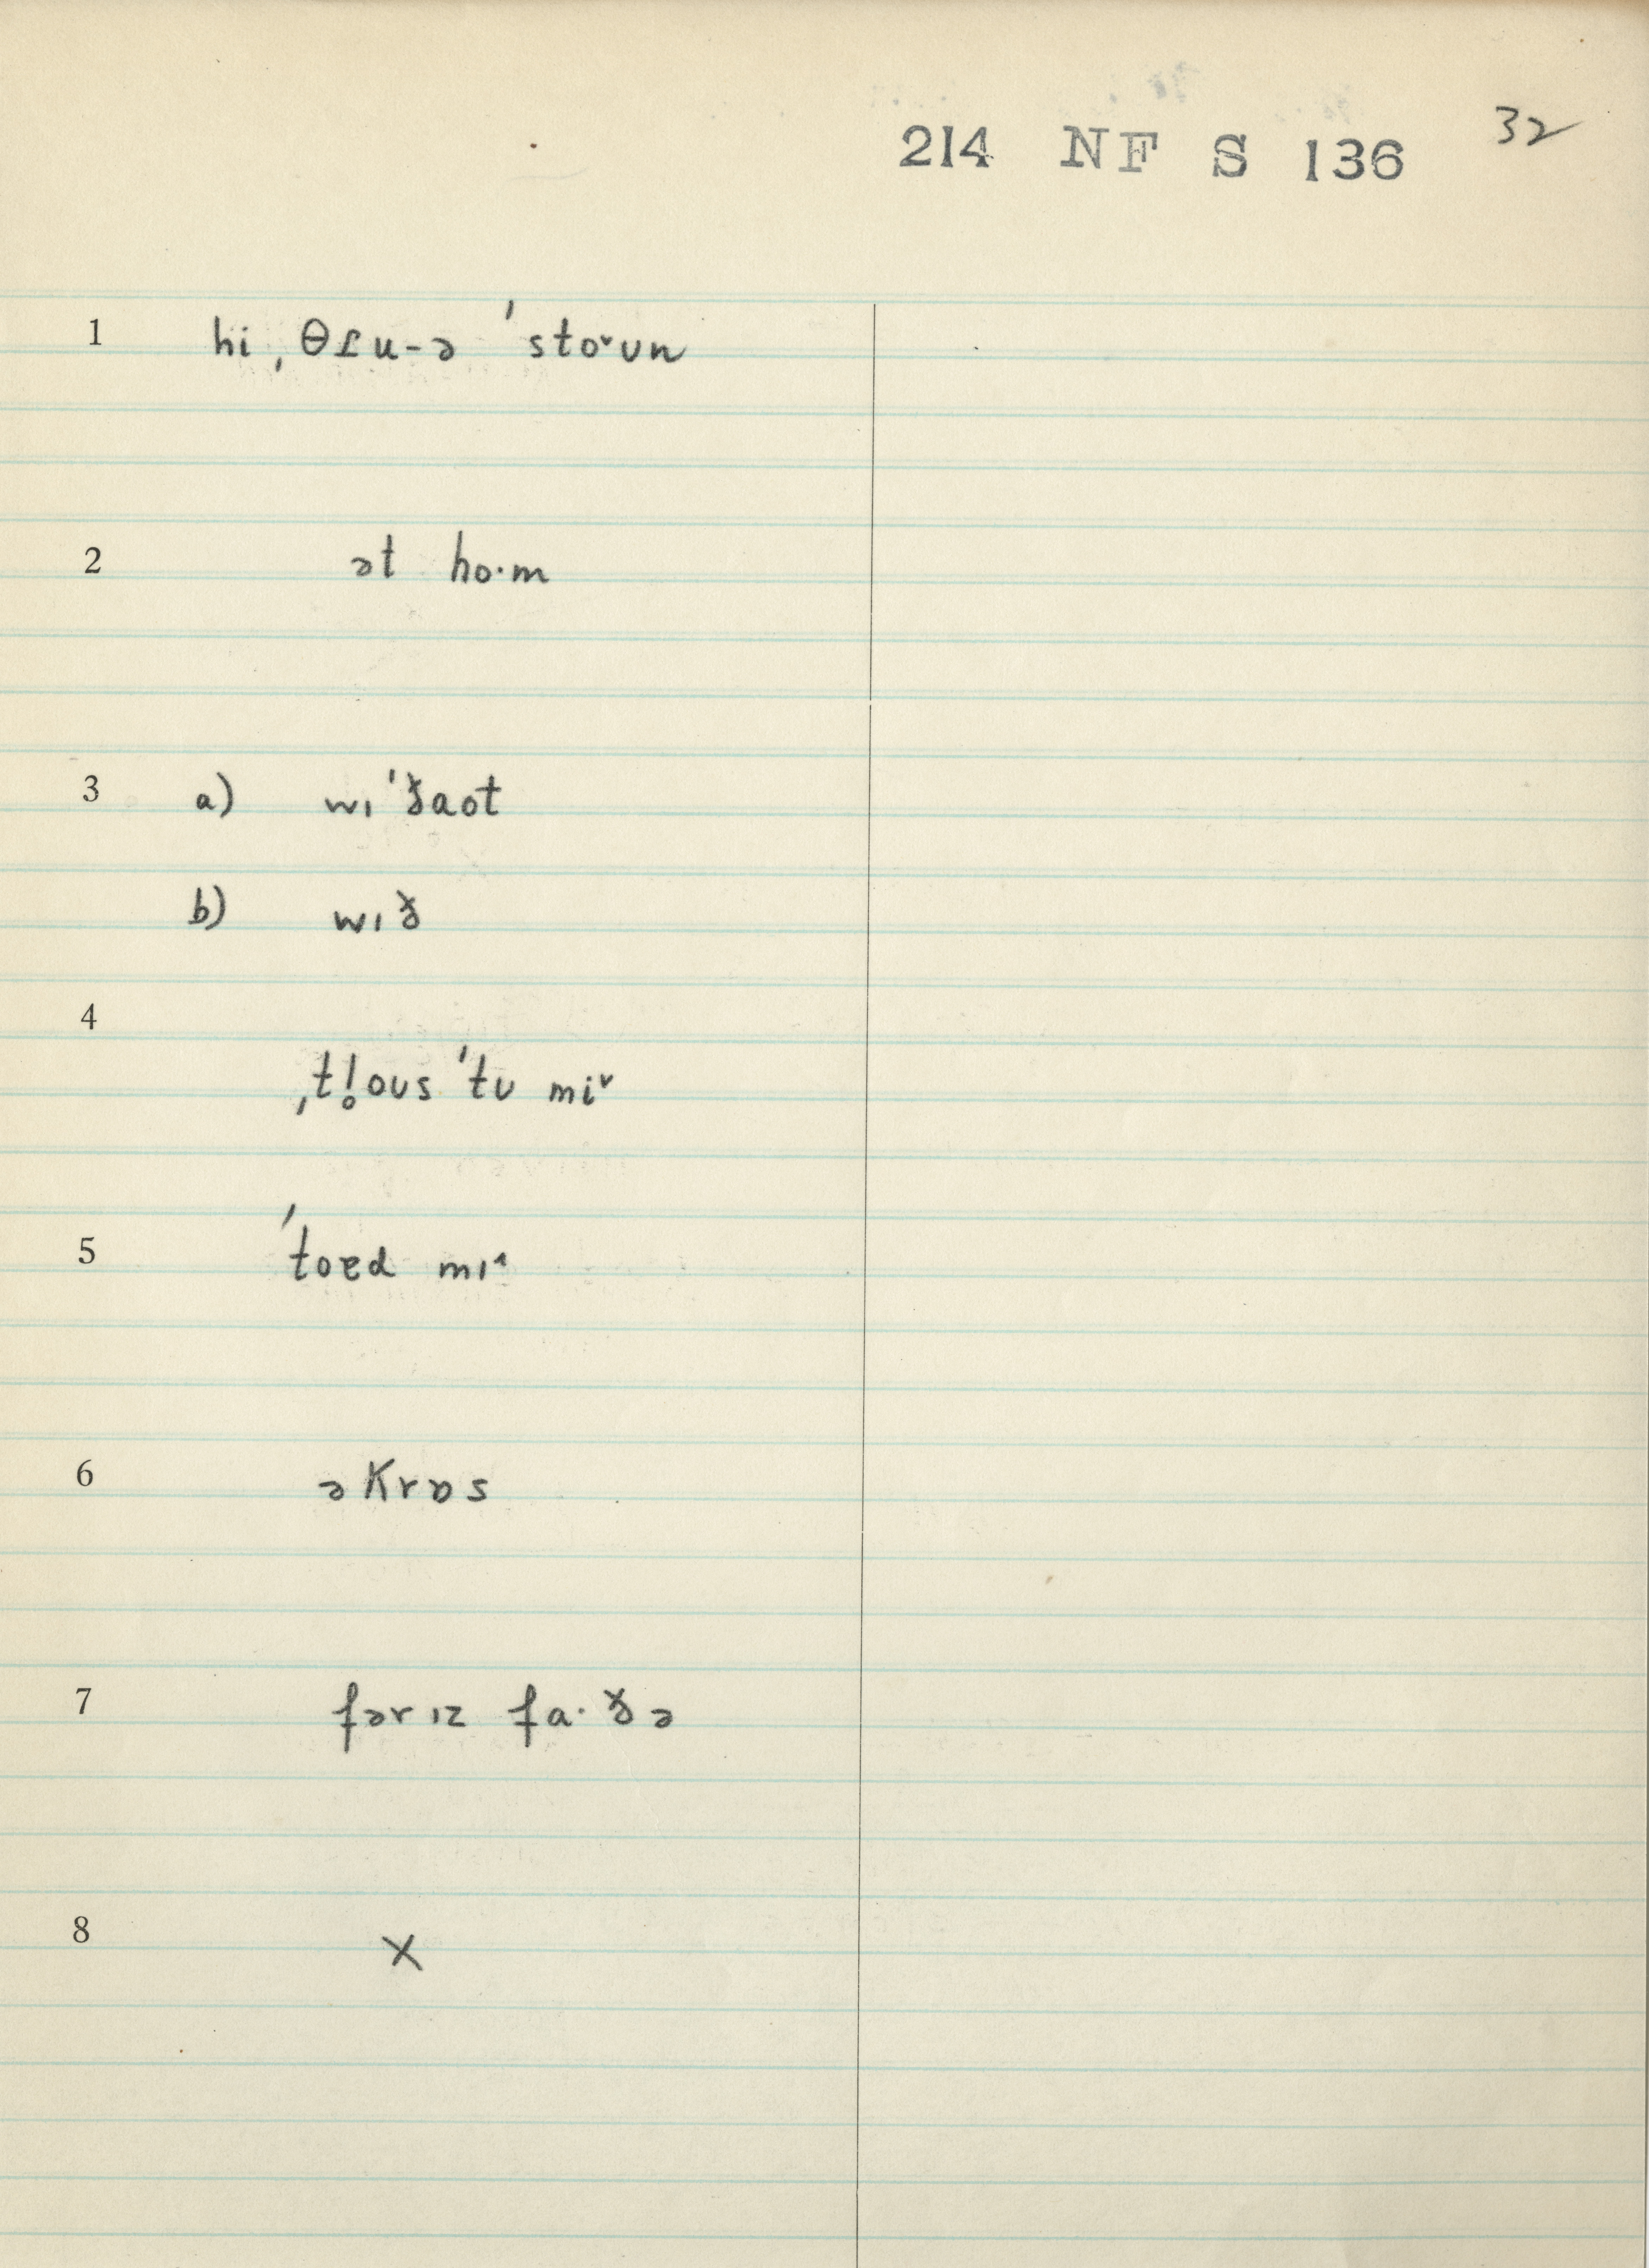 214 NF S 136 32
1 hi ˌθɾu-ə ˈsto˅ʊn
2 ət ho·m
3 a) wɪˈðaot
b) wɪð
4
ˌtl̥oʊs ˈtʊ mi˅
5 ˈtoɛd mɪ˄
6 əkrɒs
7 fərɪz fa·ðə
8 X